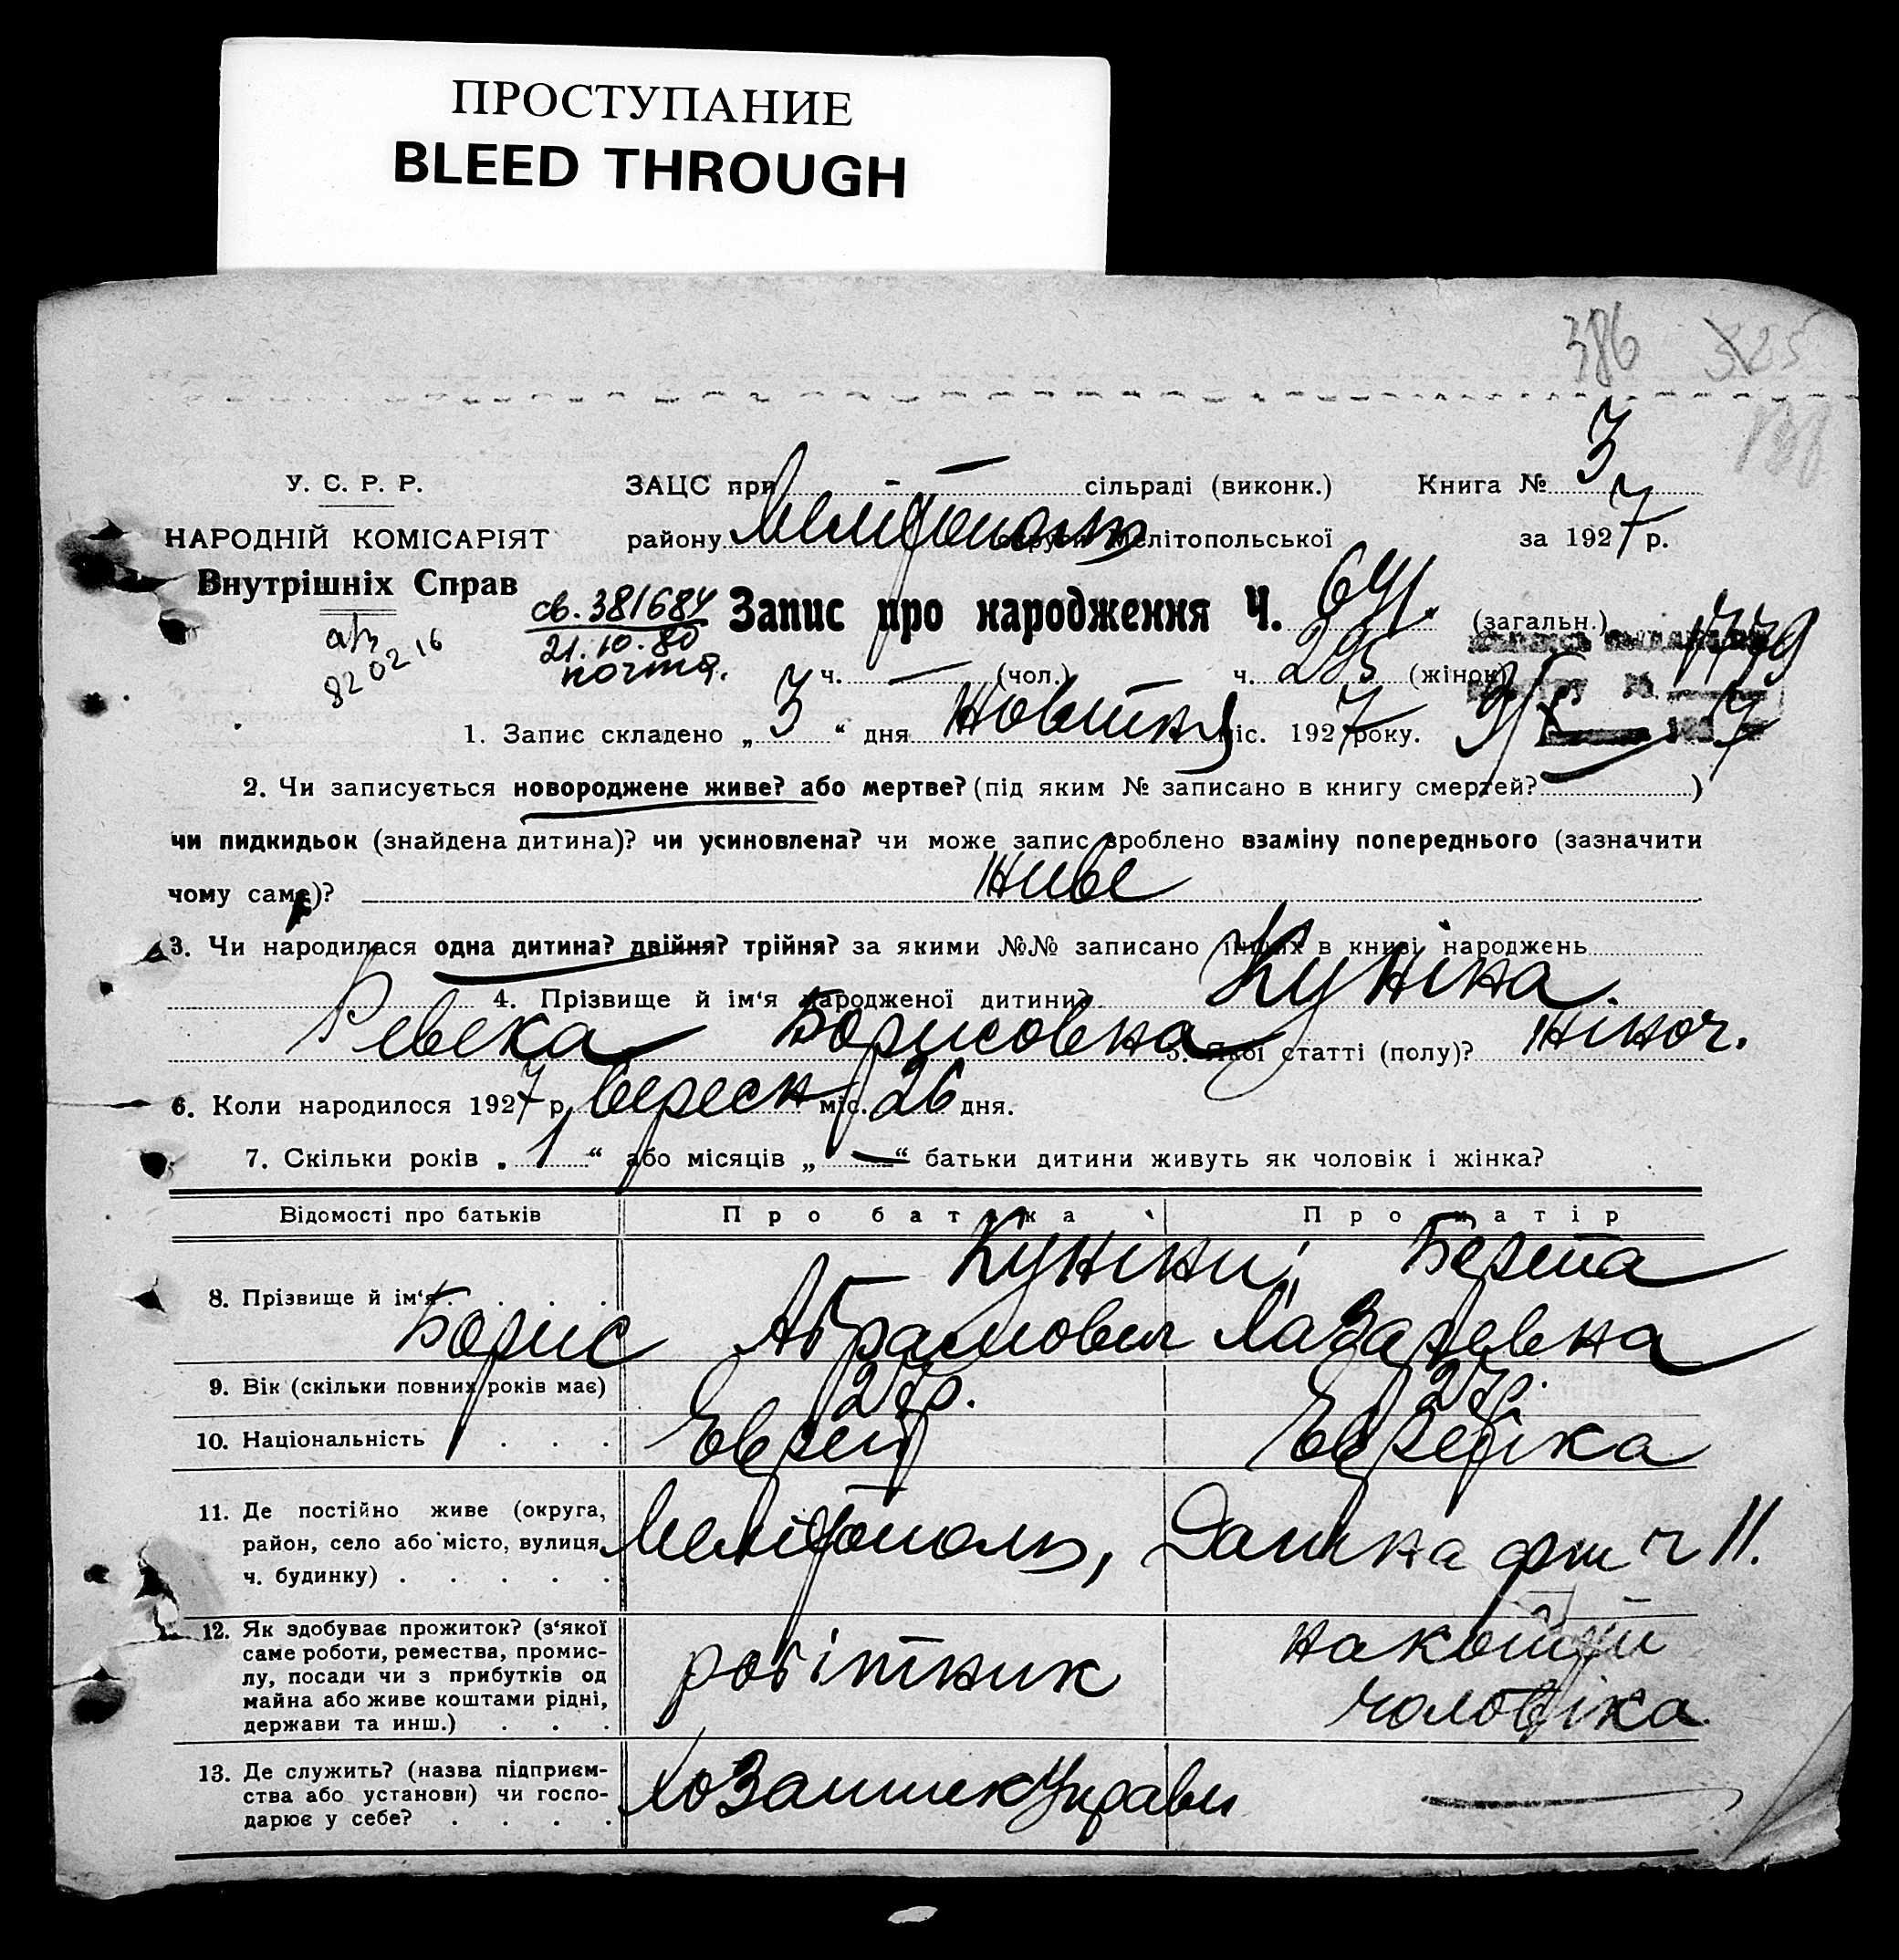 ПРОСТУПАНИЕ
BLEED THROUGH
386 325
138
У. С. Р. Р.
ЗАЦС при - сільраді (виконк.) Книга № 3
НАРОДНІЙ КОМІСАРІЯТ
району Мелітополь округи Мелітопольської за 1927 р.
Внутрішніх Справ
св. 381684 Запис про народження Ч. 641. (загальн.) 1779
21.10.80
почта.
82 02 16
ч. — (чол.) ч. 295 (жінок)
1. Запис складено „ 3 “ дня Новтня міс. 1927 року.
2. Чи записується новороджене живе? або мертве? (під яким № записано в книгу смертей? )
чи пидкидьок (знайдена дитина)? чи усиновлена? чи може запис зроблено взаміну попереднього (зазначити
чому саме)? живе
3. Чи народилася одна дитина? двійня? трійня? за якими №№ записано інших в книзі народжень
4. Прізвище й ім‘я народженої дитини? Куніна.
Ревека Борисовна 5. Якої статті (полу)? жіноч.
6. Коли народилося 1927 р. вересн міс. 26 дня.
7. Скільки років „ 1 “ або місяців „ — “ батьки дитини живуть як чоловік і жінка?
Відомості про батьків Про батька Про матір
Куніни, Берта
8. Прізвище й ім‘я . . . .
Борис Абрамович Лазаревна
9. Вік (скільки повних років має) 27р. 27р.
10. Національність . . . Еврей Еврейка
11. Де постійно живе (округа,
район, село або місто, вулиця,
ч. будинку) . . . . .
Мелітополь, ч 11.
12. Як здобуває прожиток? (з‘якої
саме роботи, ремества, промис-
лу, посади чи з прибутків од
майна або живе коштами рідні,
держави та инш.) . . .
робітник
на кошти
чоловіка
13. Де служить? (назва підприєм-
ства або установи) чи госпо-
дарює у себе? . . . .